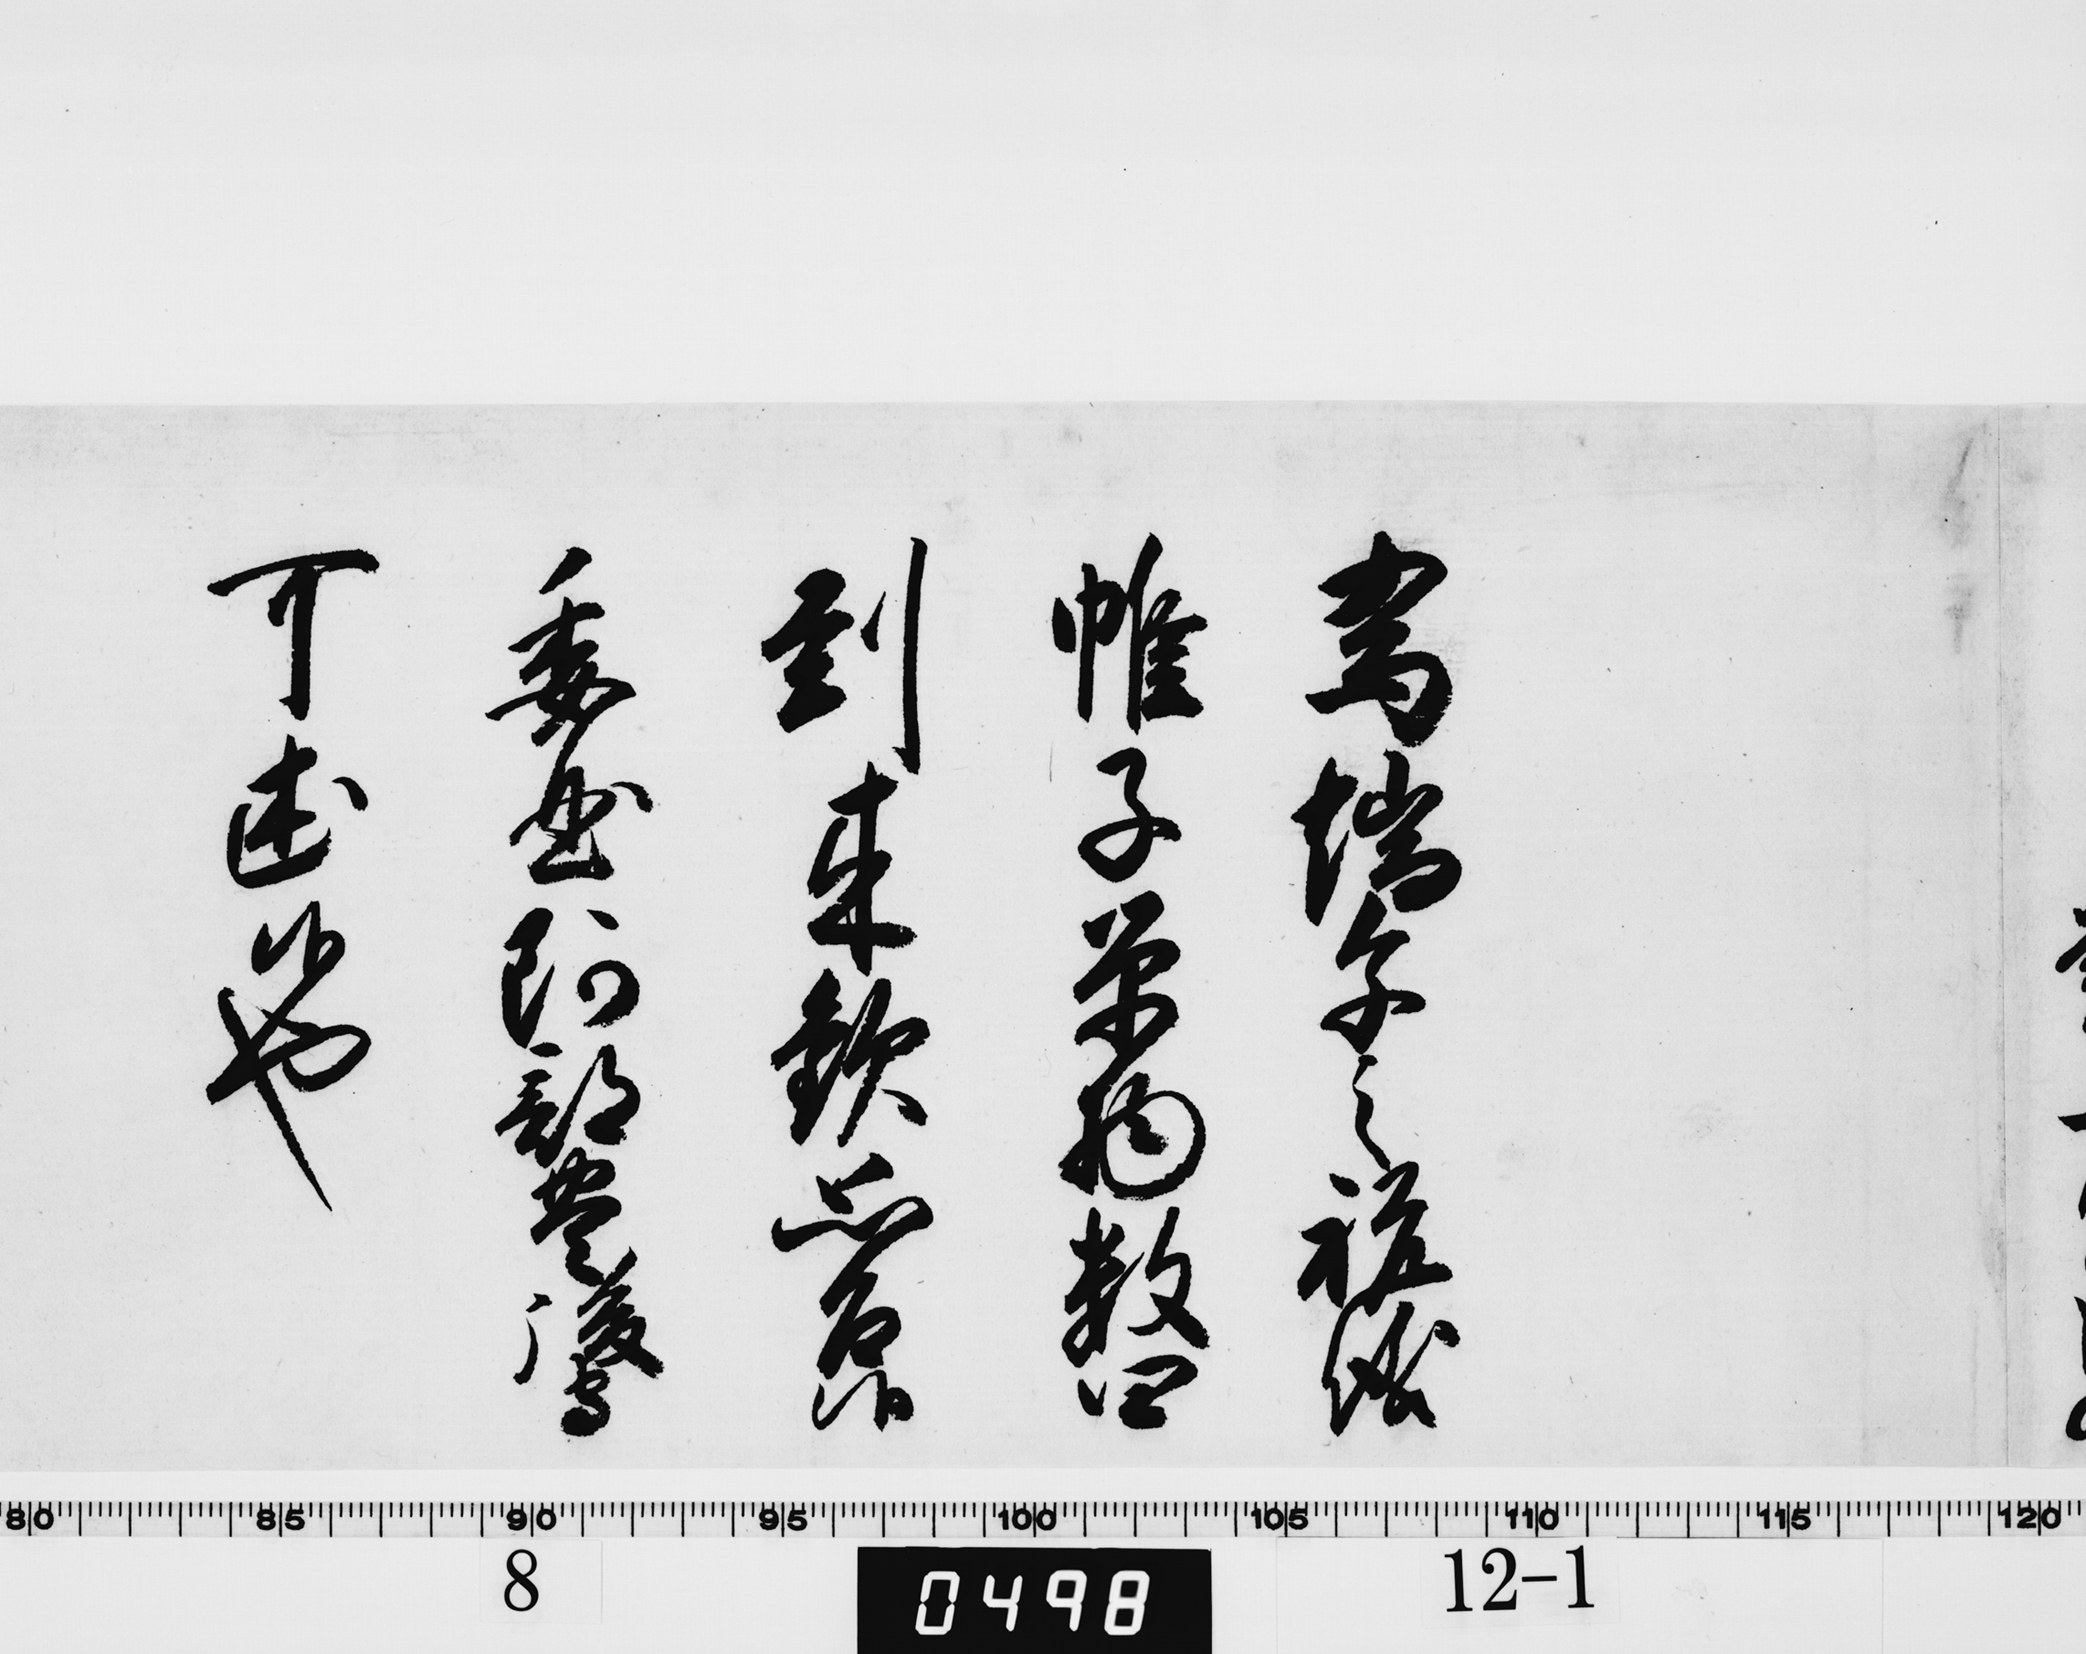 為端午之祝儀
帷子単物数四
到来歓思召候
委曲阿部豊後守
可述候也
80 85 90 95 100 105 110 115 120
8 0498 12-1